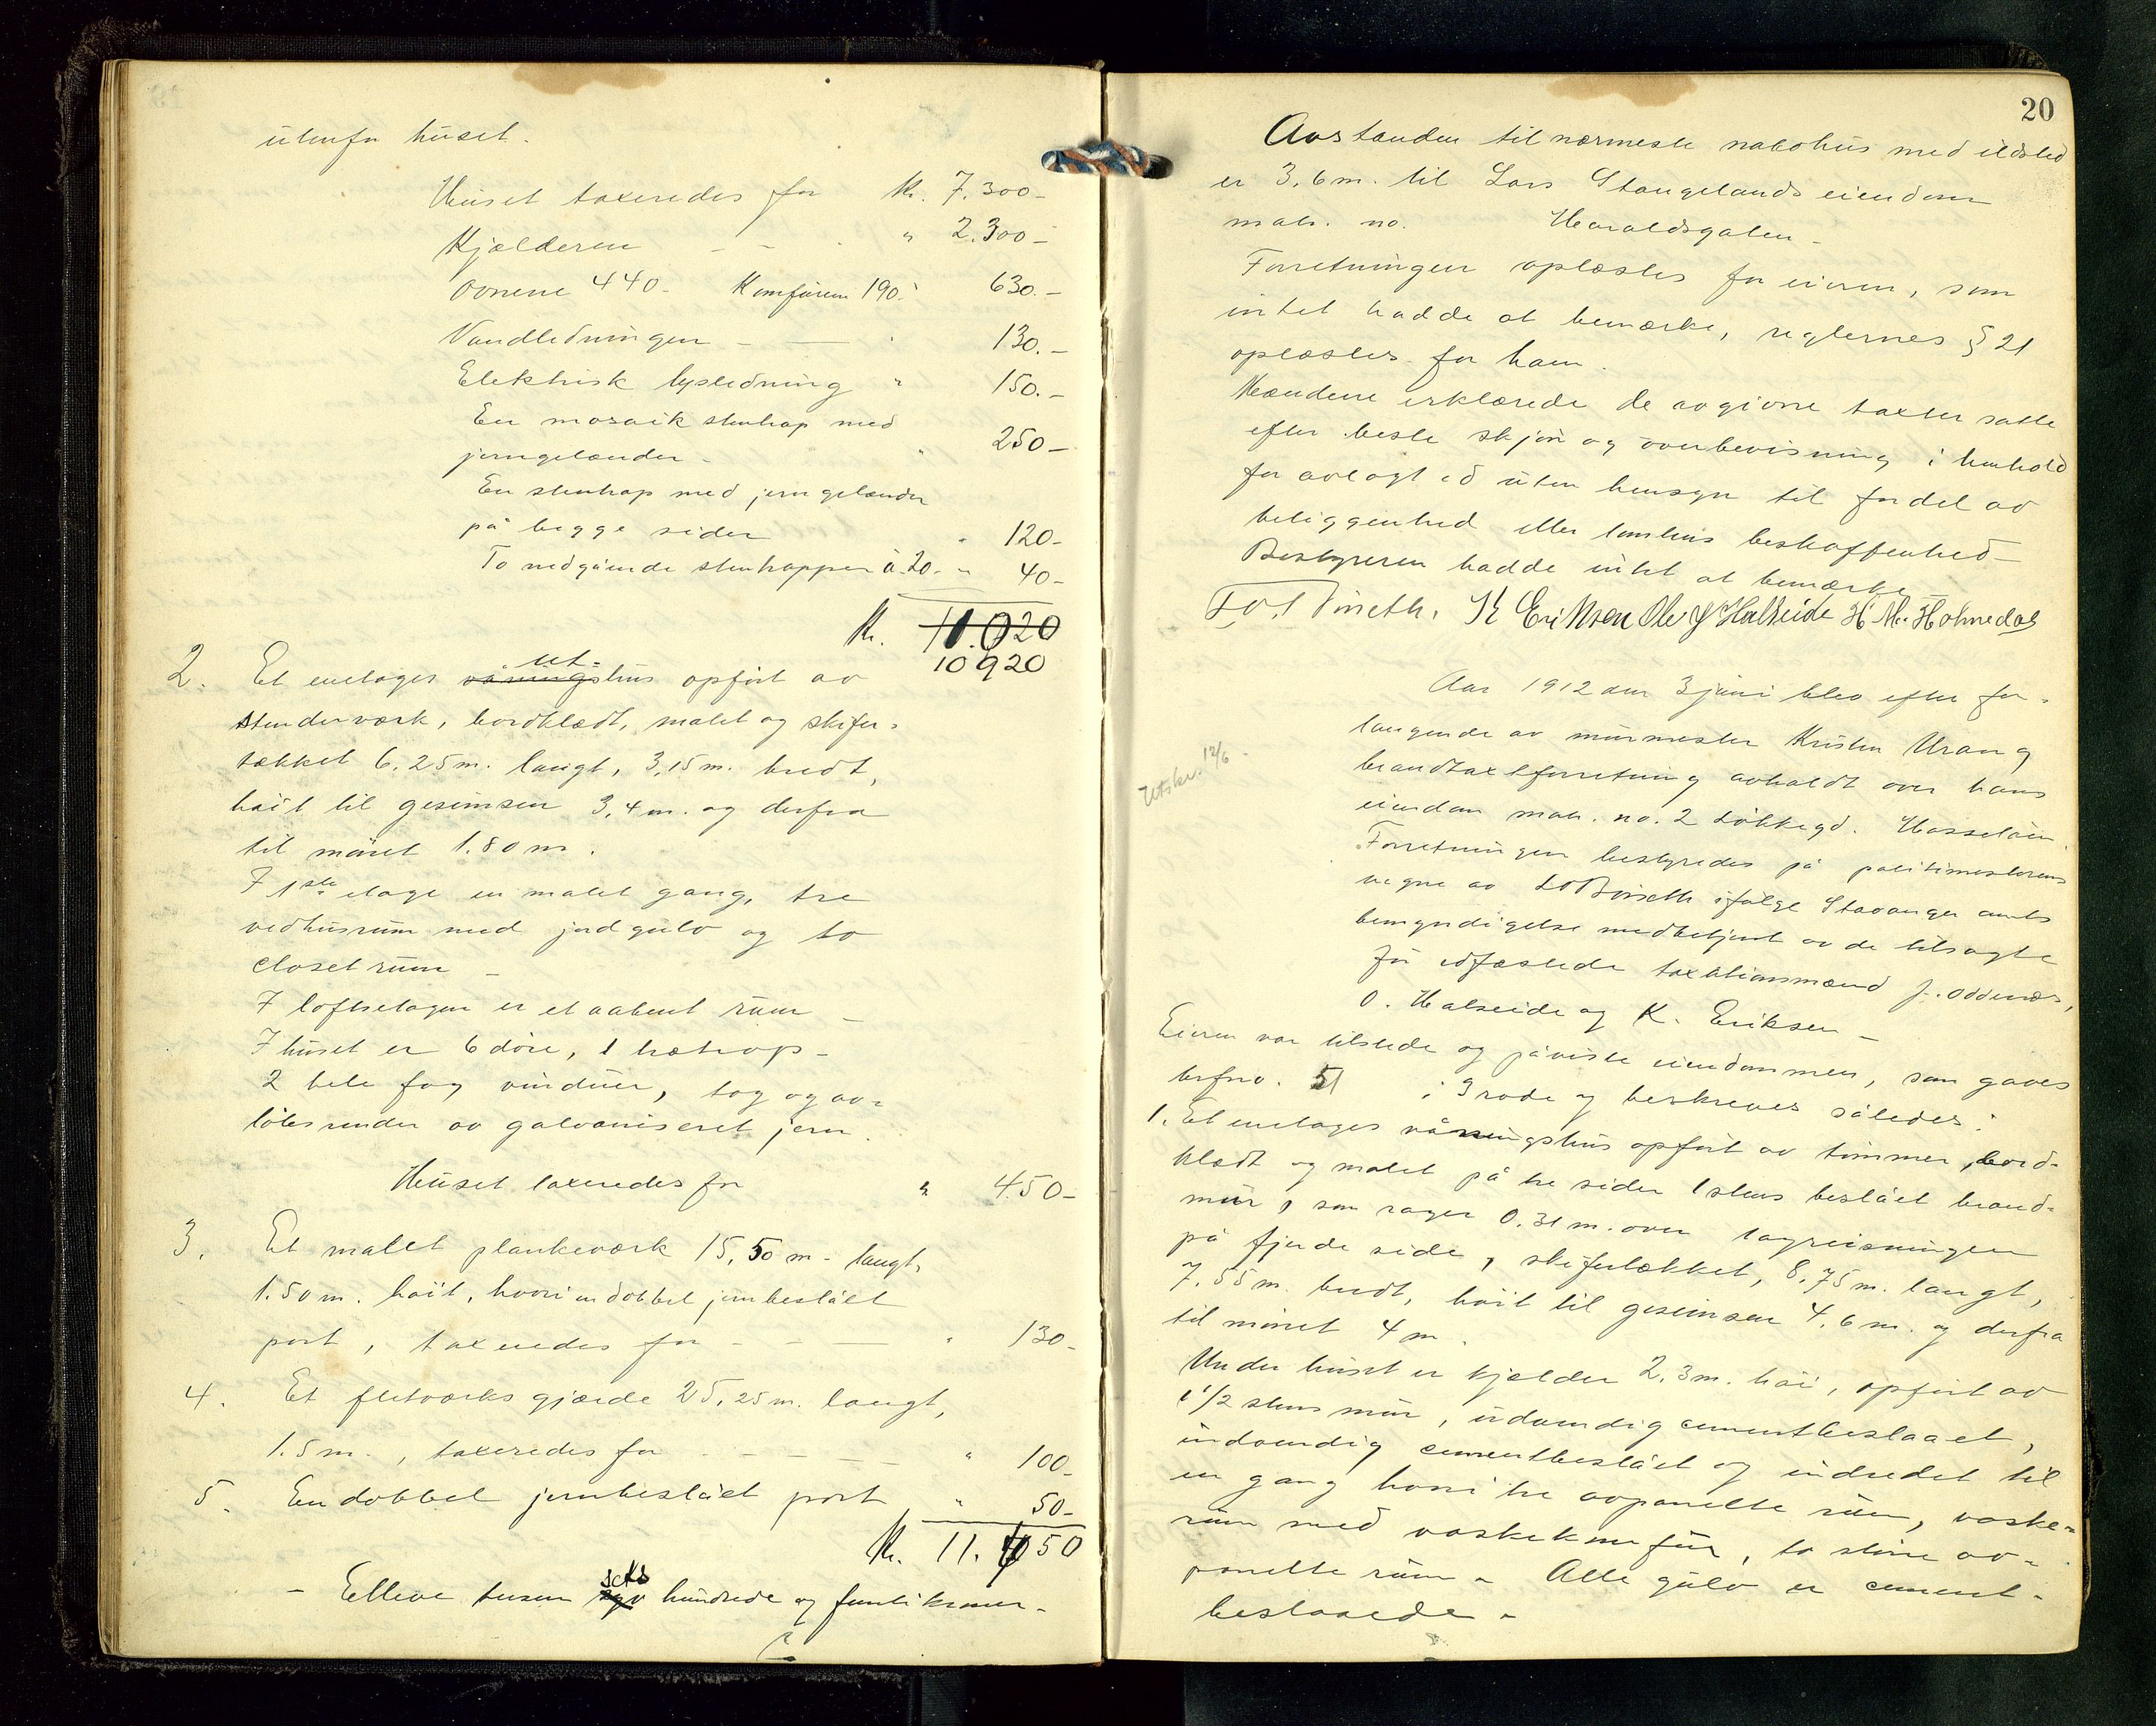 utenfor huset.
Huset taxeredes for Kr. 7.300-
Kjælderen - - - " 2.300-
Ovnene 440- Komfuren 190- 630.-
Vandledningen - - 130.-
Elektrisk lysledning " 150.-
En mosaik stentrap med
jerngelænder - " 250-
En stentrap med jerngelænder
på begge sider " 120-
To nedgående stentrapper à 20- " 40-
Kr. 11.020
10920
2. Et enetages våningshus ut- opført av
stenderværk, bordklædt, malet og skifer-
tækket 6.25m. langt, 3,15m. bredt,
høit til gesimsen 3,4m. og derfra
til mønet 1.80m.
I 1ste etage en malet gang, tre
vedhusrum med jordgulv og to
closetrum -
I loftsetagen er et aabent rum -
I huset er 6 døre, 1 trætrap-
2 hele fag vinduer, tag og av-
løbsrender av galvaniseret jern.
Huset taxeredes for " 450-
3. Et malet plankeværk 15,50m- langt,
1.50m. høit, hvori en dobbel jernbeslået
port, taxeredes for - - - " 130-
4. Et fletværksgjærde 25,25m. langt,
1.5m., taxeredes for - - - " 100-
5. En dobbel jernbeslået port " 50-
Kr. 11.650
- Elleve tusen seks hundrede og femti kroner-
20
Avstanden til nærmeste nabohus med ildsted
er 3,6m. til Lars Stangelands eiendom
matr. no. Haraldsgaten-
Forretningen oplæstes for eieren, som
intet hadde at bemærke, reglernes § 21
oplæstes for ham.
Mændene erklærede de avgivne taxter satte
efter beste skjøn og overbevisning i henhold
for avlagt ed uten hensyn til fordel av
beliggenhed eller tomtens beskaffenhed-
Bestyreren hadde intet at bemærke
K Eriksen Ole J Halseide H M. Holmedal
Aar 1912 den 3 juni blev efter for-
langende av murmester Kristen Urang
brandtaxtforretning avholdt over hans
eiendom matr. no. 2 Løkkegd. Hasseløen.
Forretningen bestyredes på politimesterens
vegne av ifølge Stavanger amts
bemyndigelse medbetjent av de tilsagte
før edfæstede taxationsmænd J. Oddenes,
O. Halseide og K. Eriksen -
Utskr. 12/6 -
Eieren var tilstede og påviste eiendommen, som gaves
brfno. 51 i 3 rode og beskreves således:
1. Et enetages våningshus opført av tømmer, bord-
klædt og malet på tre sider 1 stens beslået brand-
mur, som rager 0.31m. over tagreisningen
på fjerde side, skifertækket, 8,75m. langt,
7.55m. bredt, høit til gesimsen 4,6m. og derfra
til mønet 4m.
Under huset er kjælder 2.3m. høi, opført av
1 1/2 stens mur, udvendig cementbeslaaet,
indvendig cementbeslået og indredet til
en gang hvori tre avpanelte rum, vaske-
rum med vaskekomfur, to større av-
panelte rum - Alle gulv er cement-
beslaaede -